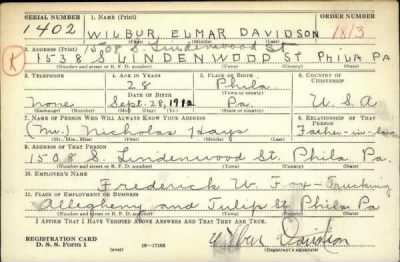 SERIAL NUMBER
1. NAME (Print)
ORDER NUMBER
1402
WILBUR ELMAR DAVIDSON
1813
(First) (Middle) (Last)
1508 S. Lindenwood St
2. ADDRESS (Print)
R
1538 S LINDENWOOD ST PHILA PA
(Number and street or R. F. D. number) (Town) (County) (State)
3. TELEPHONE
4. AGE IN YEARS
5. PLACE OF BIRTH
6. COUNTRY OF CITIZENSHIP
28
Phila
DATE OF BIRTH
(Town or county)
None
Sept. 28, 1912
Pa.
U. S. A
(Exchange) (Number)
(Mo.) (Day) (Yr.)
(State or country)
7. NAME OF PERSON WHO WILL ALWAYS KNOW YOUR ADDRESS
8. RELATIONSHIP OF THAT PERSON
(Mr.) Nicholas Hays
Father-in-law
(Mr., Mrs., Miss) (First) (Middle) (Last)
9. ADDRESS OF THAT PERSON
1508 S. Lindenwood St. Phila Pa.
(Number and street or R. F. D. number) (Town) (County) (State)
10. EMPLOYER'S NAME
Frederick W. Fox - Trucking
11. PLACE OF EMPLOYMENT OR BUSINESS
Allegheny and Tulip St Phila Pa
(Number and street or R. F. D. number) (Town) (County) (State)
I AFFIRM THAT I HAVE VERIFIED ABOVE ANSWERS AND THAT THEY ARE TRUE.
REGISTRATION CARD
D. S. S. Form 1
(over)
16-17105
Wilbur Davidson
(Registrant's signature)